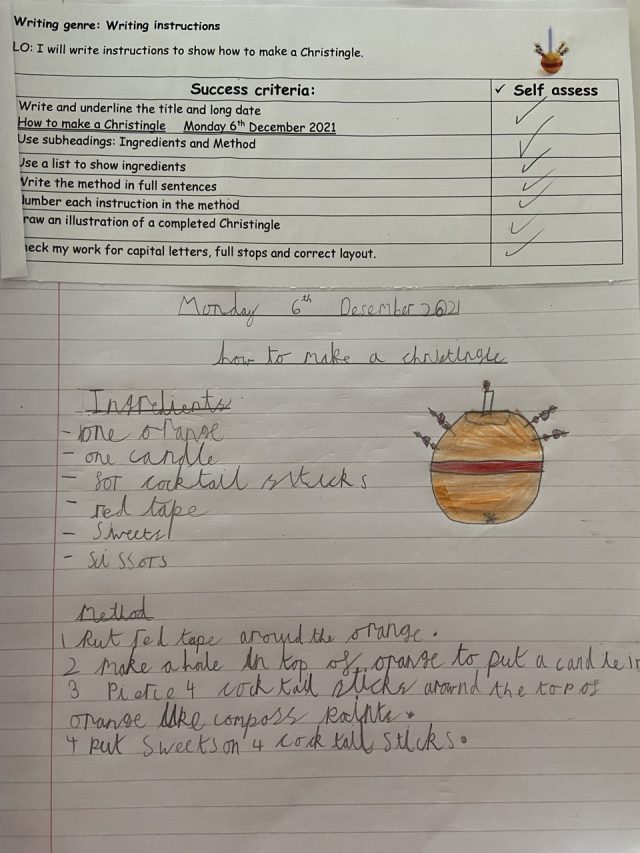 Writing genre: Writing instructions
LO: I will write instructions to show how to make a Christingle.
Success criteria: ✓ Self assess
Write and underline the title and long date
How to make a Christingle Monday 6th December 2021
Use subheadings: Ingredients and Method
Use a list to show ingredients
Write the method in full sentences
umber each instruction in the method
raw an illustration of a completed Christingle
eck my work for capital letters, full stops and correct layout.
Monday 6th Desember 2021
how to make a christingle
Ingredients
- one orange
- one candle
- for cocktail sticks
- red tape
- Sweets
- scissors
Method
1 Put red tape around the orange.
2 make a hole in top of orange to put a candle in
3 Pierce 4 cocktail sticks around the top of
orange like compass points.
4 put sweets on 4 cocktail sticks.